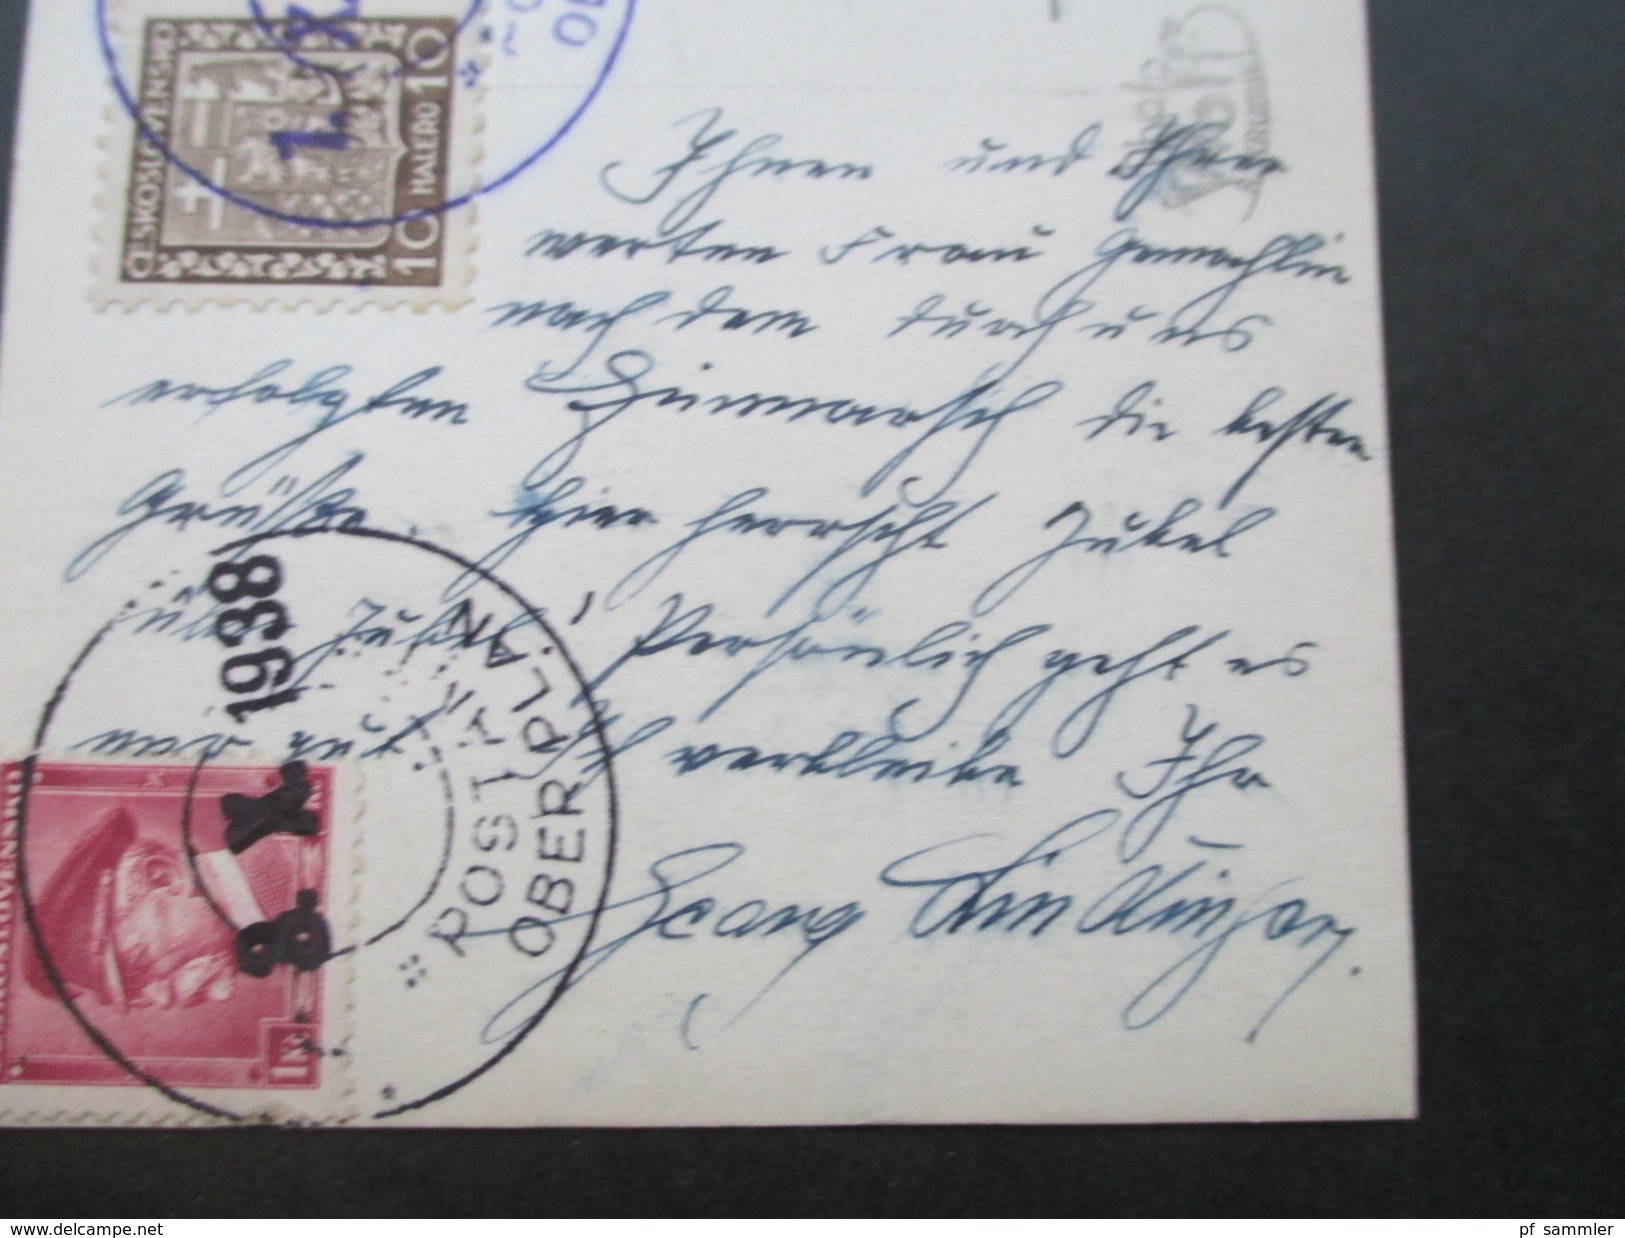 ČESKOSLOVENSKO
10 HALÉŘŮ 10
1. X.
OB
Photo
Krumm
Ihnen und Ihrer
werten Frau Gemahlin
nach dem durch uns
erfolgten Heimmarsch die besten
Grüße. Hier herrscht Jubel
über Jubel. Persönlich geht es
mir gut. Ich verbleibe Ihr
Georg
8. X. 1938
POSTAMT
OBER PLAN
1 Kč
www.delcampe.net
pf_sammler